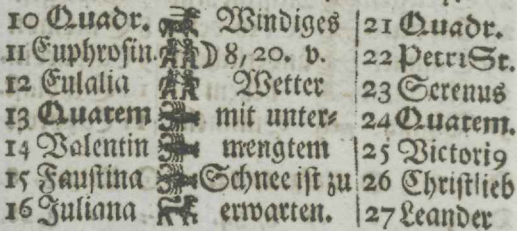 10 Quadr. Windiges 21 Quadr.
11 Euphrosin. ☽ 8,20. v. 22 Petri St.
12 Eulalia Wetter 23 Serenus
13 Quatem mit unter⸗ 24 Quatem.
14 Valentin mengtem 25 Victori9
15 Faustina Schnee ist zu 26 Christlieb
16 Juliana erwarten. 27 Leander